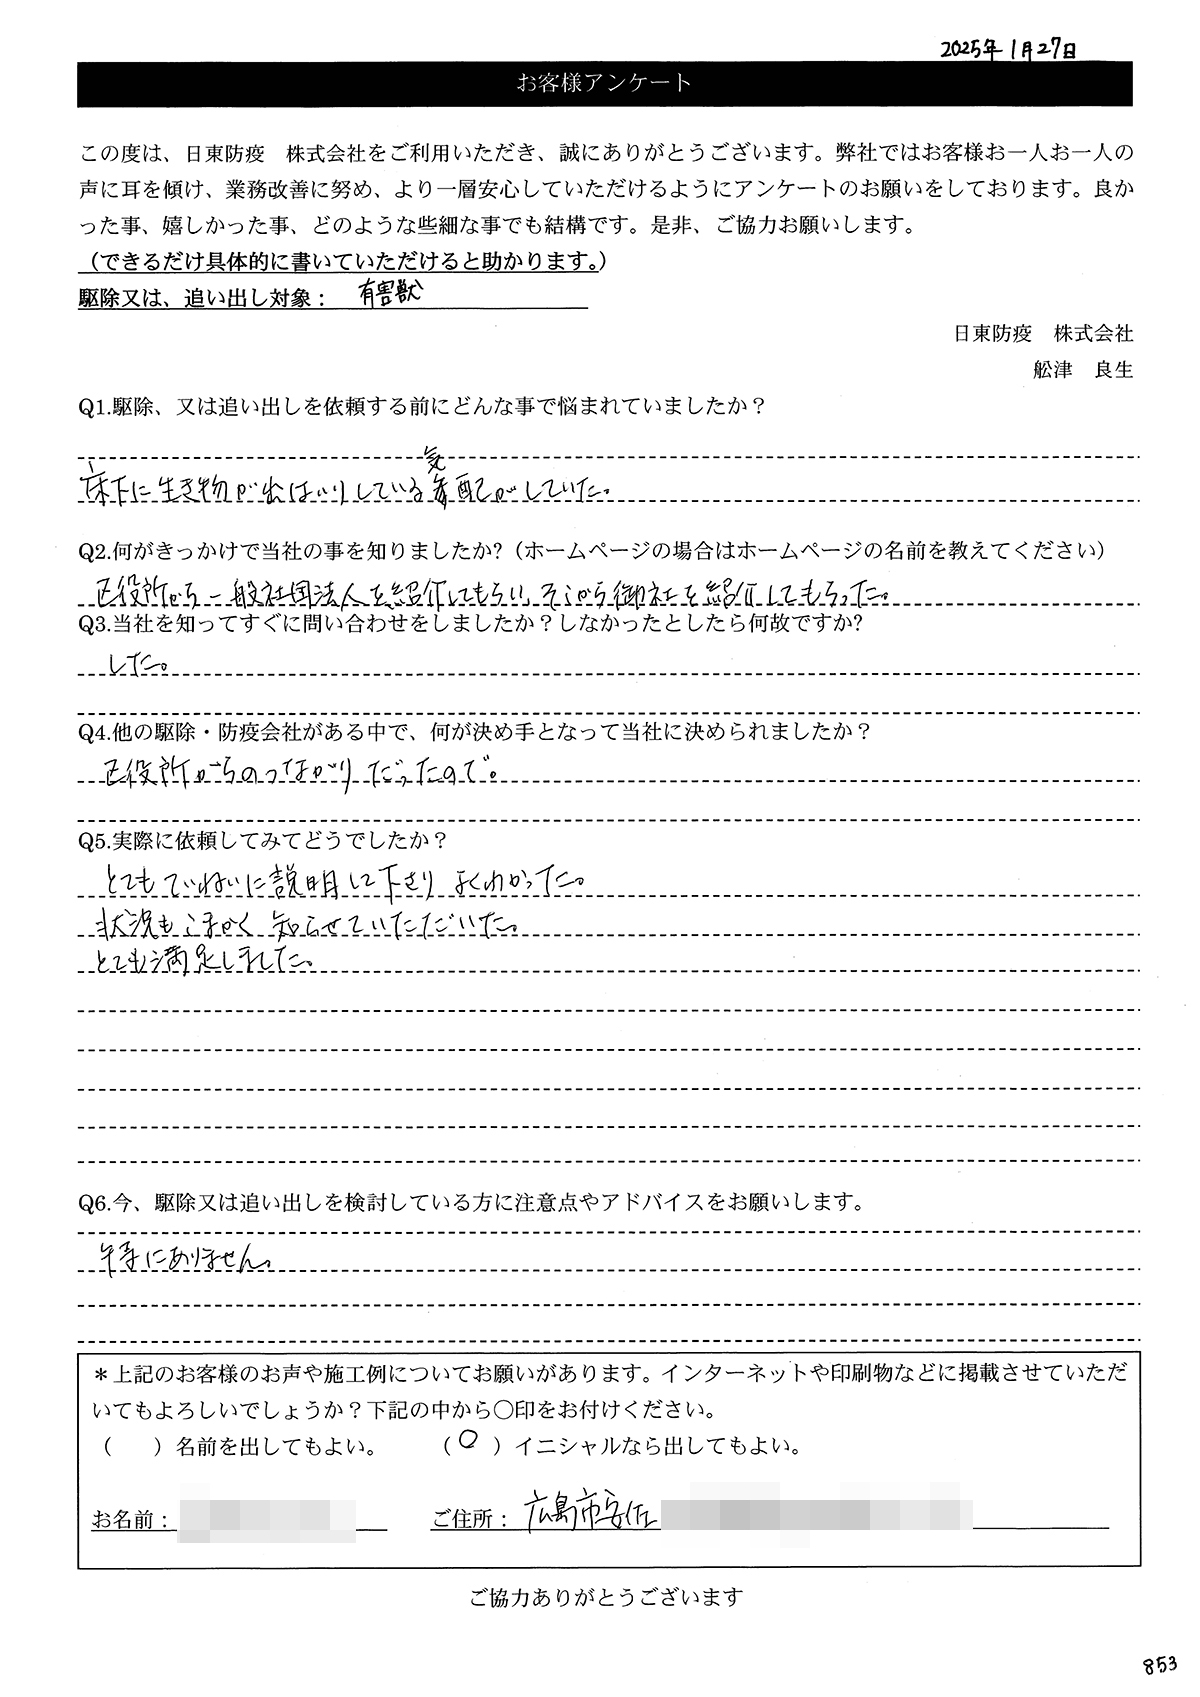 2025年1月27日
お客様アンケート
この度は、日東防疫　株式会社をご利用いただき、誠にありがとうございます。弊社ではお客様お一人お一人の
声に耳を傾け、業務改善に努め、より一層安心していただけるようにアンケートのお願いをしております。良か
った事、嬉しかった事、どのような些細な事でも結構です。是非、ご協力お願いします。
（できるだけ具体的に書いていただけると助かります。）
駆除又は、追い出し対象： 有害獣
日東防疫　株式会社
舩津　良生
Q1.駆除、又は追い出しを依頼する前にどんな事で悩まれていましたか？
床下に生き物が出はいりしている気配がしていた。
Q2.何がきっかけで当社の事を知りましたか?（ホームページの場合はホームページの名前を教えてください）
区役所から一般社団法人を紹介してもらい、そこから御社を紹介してもらった。
Q3.当社を知ってすぐに問い合わせをしましたか？しなかったとしたら何故ですか?
した。
Q4.他の駆除・防疫会社がある中で、何が決め手となって当社に決められましたか？
区役所からのつながりだったので。
Q5.実際に依頼してみてどうでしたか？
とてもていねいに説明して下さり よくわかった。
状況もこまかく 知らせていただいた。
とても満足しました。
Q6.今、駆除又は追い出しを検討している方に注意点やアドバイスをお願いします。
特にありません。
＊上記のお客様のお声や施工例についてお願いがあります。インターネットや印刷物などに掲載させていただ
いてもよろしいでしょうか？下記の中から〇印をお付けください。
（　　）名前を出してもよい。　　（〇）イニシャルなら出してもよい。
お名前：　　ご住所： 広島市安佐
ご協力ありがとうございます
853